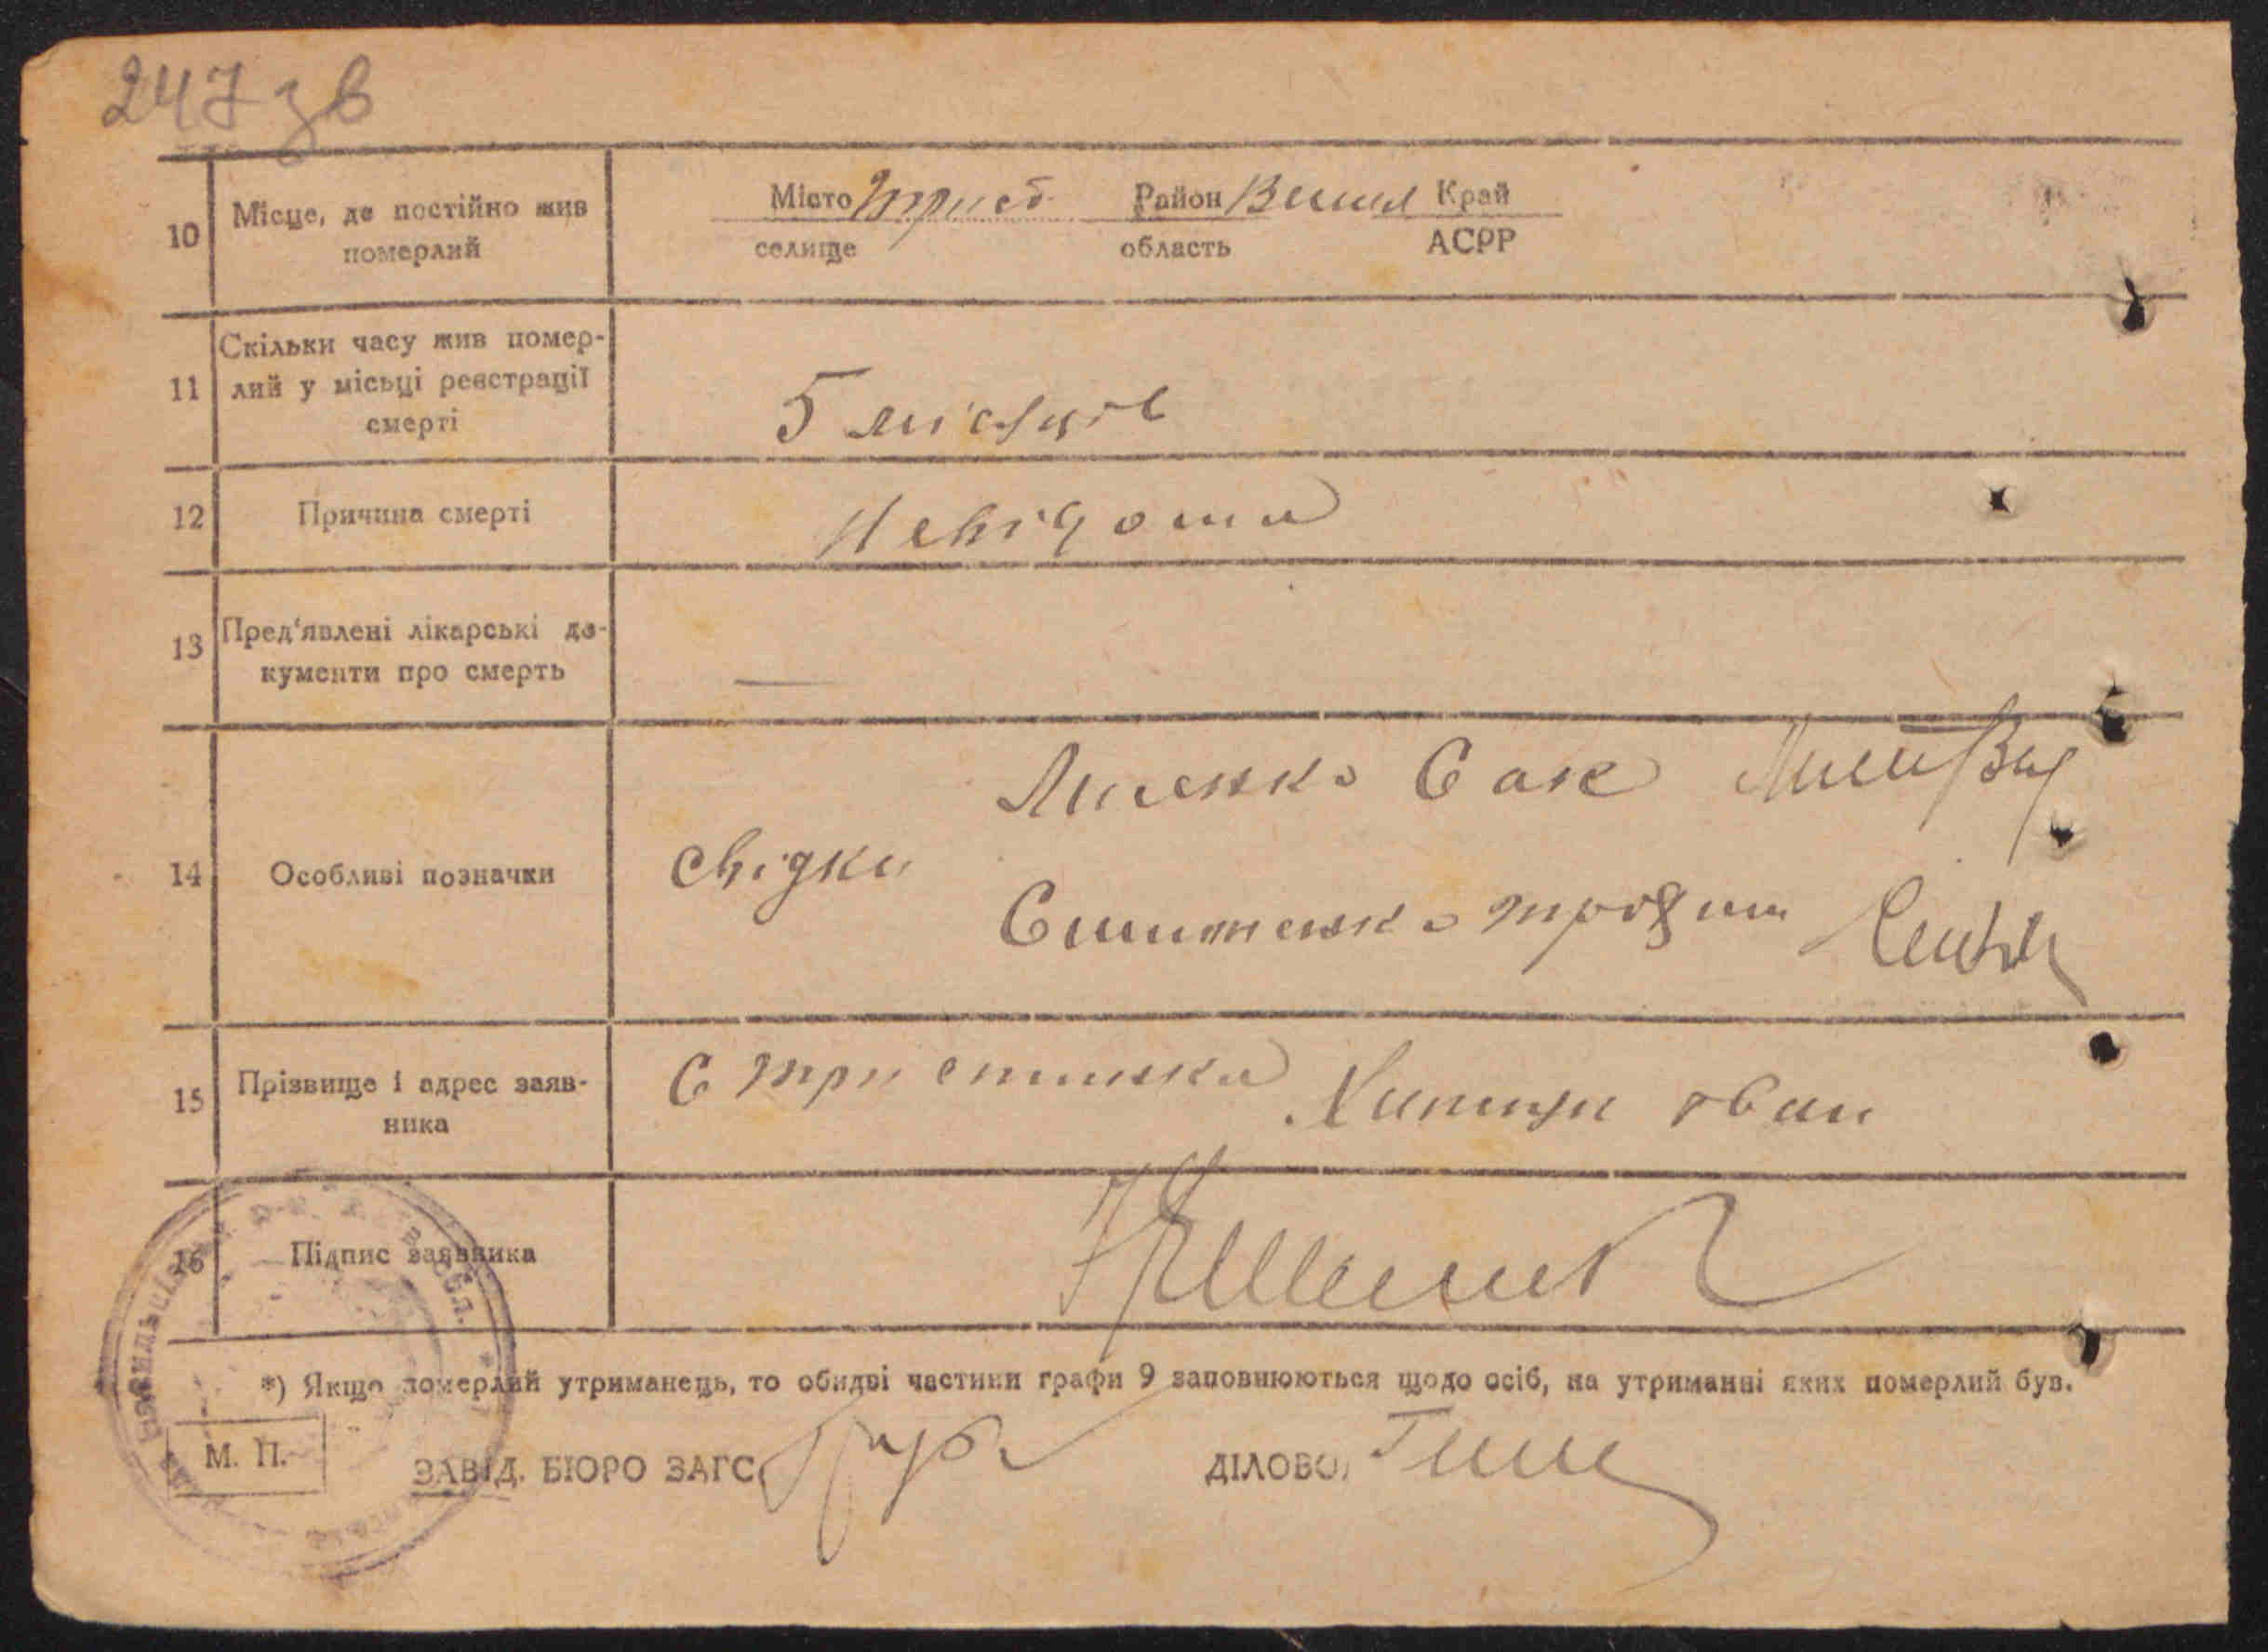 247 зв
10
Місце, де постійно жив
померлий
Місто Трист. Район Васил Край
селище область АСРР
11
Скільки часу жив помер-
лий у місьці реєстрації
смерті
5 місяців
12
Причина смерті
Невідома
13
Пред'явлені лікарські до-
кументи про смерть
—
14
Особливі позначки
Лисенко Сак
свідки
Симоненко трохим
15
Прізвище і адрес заяв-
ника
С тристинка
іван
16
Підпис заявника
*) Якщо померлий утриманець, то обидві частини графи 9 заповнюються щодо осіб, на утриманні яких померлий був.
М. П.
ЗАВІД. БЮРО ЗАГС
ДІЛОВОД